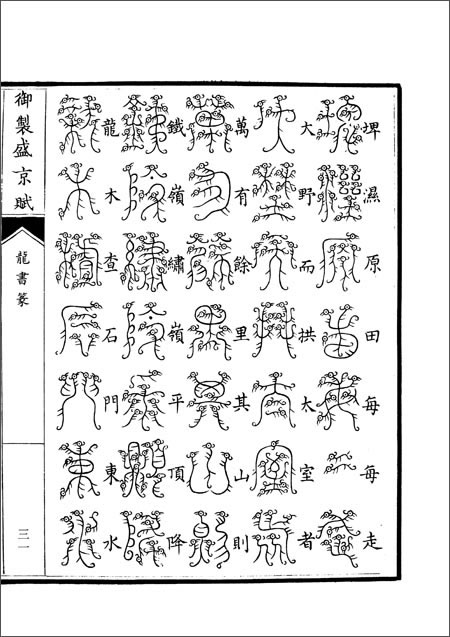 埤濕原田每每走
大野而拱太室者
萬有餘里其山則
鐵嶺繡嶺平頂降
龍木查石門東水
御製盛京賦
龍書篆
三一